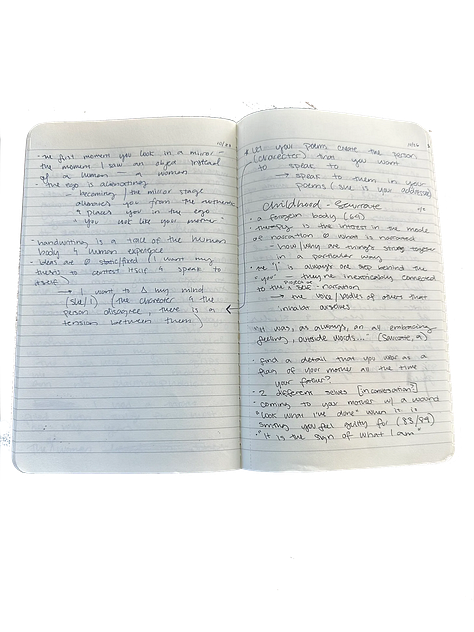 • the first moment you look in a mirror –
the moment I saw an object instead
of a human – a woman
• the ego is alienating
– becoming / the mirror stage
alienates you from the authentic
& places you in the ego
"you look like your mother"
• handwriting is a trace of the human
body & human experience
• ideas are static/fixed (I want my
thesis to contest itself & speak to
itself)
→ I want to Δ my mind
(she/I) (the character & the
person disagree, there is a
tension between them)
* let your poems create the person
(character) that you want
to speak to
→ speak to them in your
poems (she is your addressee)
Childhood - Sarraute
• a foreign body (64)
is the interest in the mode
of narration what is narrated
– how/why are things strung together
in a particular way
• the "I" is always one step behind the
"you" – they're inextricably connected
to the self-narration
→ the voice/bodies of others that
inhabit ourselves
"it was, as always, an all embracing
feeling, outside words..." (Sarraute, 9)
• find a detail that you wear as a
of your mother all the time
your father?
• 2 different selves [in conversation?]
• coming to your mother w/ a wound
"look what I've done" when it is
smthg you feel guilty for (83/84)
• "it is the sign of what I am"